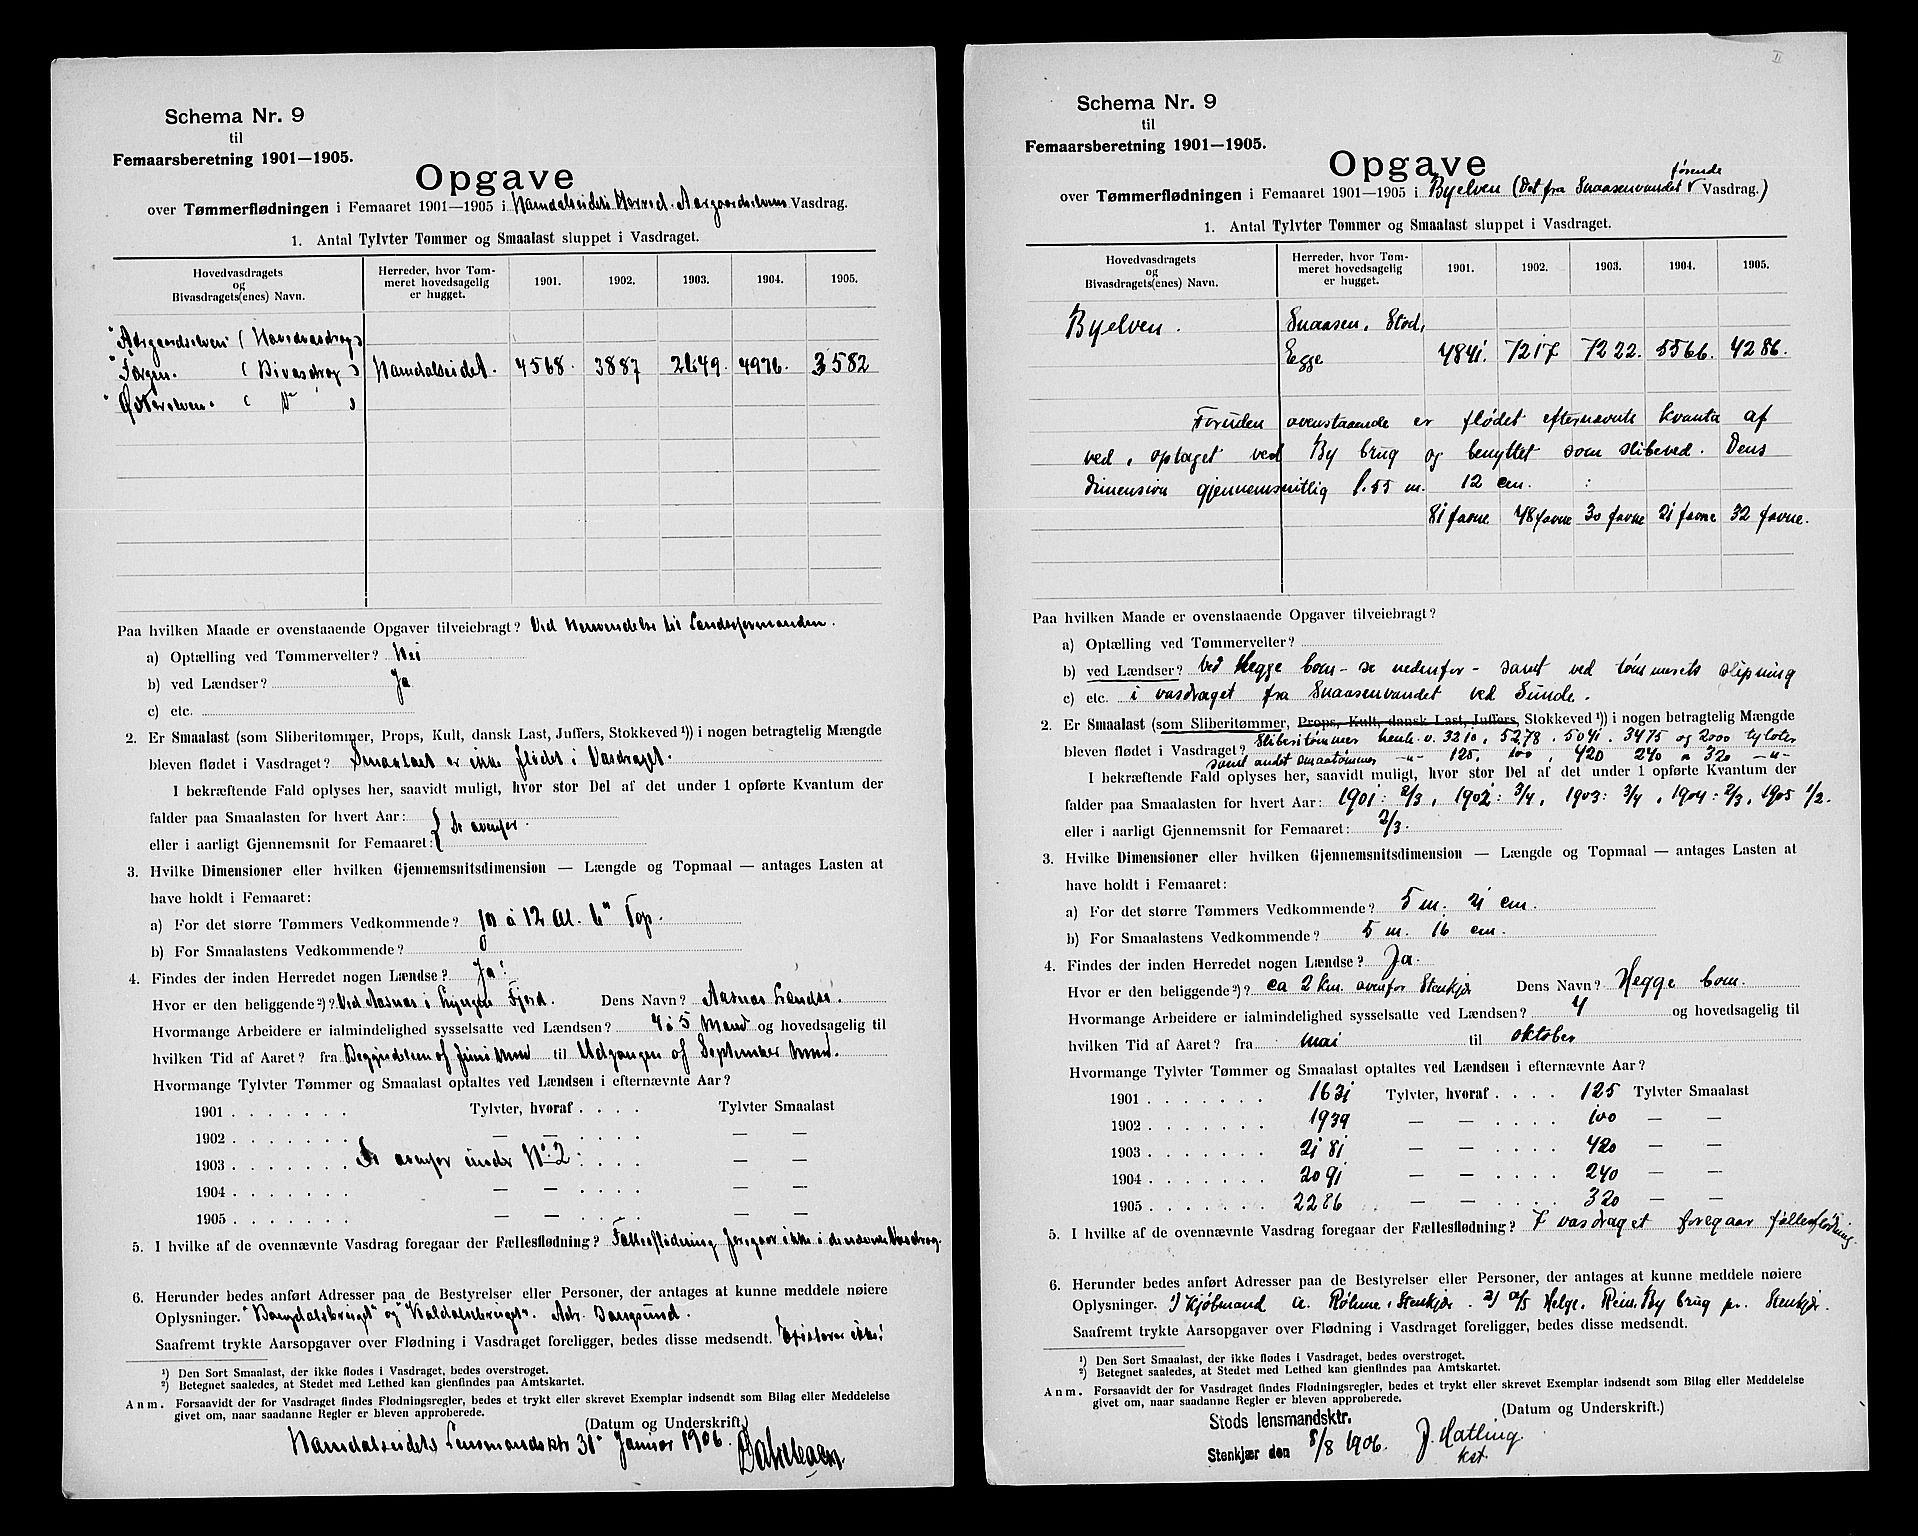 Schema Nr. 9
til
Femaarsberetning 1901—1905.
Opgave
over Tømmerflødningen i Femaaret 1901—1905 i Namdalseidets Herred. Aargaardselvens Vasdrag.
1. Antal Tylvter Tømmer og Smaalast sluppet i Vasdraget.
Hovedvasdragets og Bivasdragets(enes) Navn.
Herreder, hvor Tømmeret hovedsagelig er hugget.
1901. 1902. 1903. 1904. 1905.
Aargaardselven (Hovedvasdrag)
Fergen. (Bivasdrag) Namdalseidet. 4568. 3887 2649. 4976. 3582
Østerelven. ( Do )
Paa hvilken Maade er ovenstaaende Opgaver tilveiebragt? Ved Henvendelse til Lændseformanden.
a) Optælling ved Tømmervelter? Nei
b) ved Lændser? Ja
c) etc.
2. Er Smaalast (som Sliberitømmer, Props, Kult, dansk Last, Juffers, Stokkeved ¹)) i nogen betragtelig Mængde
bleven flødet i Vasdraget? Smaalast er ikke flødet i Vasdraget.
I bekræftende Fald oplyses her, saavidt muligt, hvor stor Del af det under 1 opførte Kvantum der
falder paa Smaalasten for hvert Aar:
eller i aarligt Gjennemsnit for Femaaret: Se ovenfor.
3. Hvilke Dimensioner eller hvilken Gjennemsnitsdimension — Længde og Topmaal — antages Lasten at
have holdt i Femaaret:
a) For det større Tømmers Vedkommende? 10 à 12 Al. 6" Top.
b) For Smaalastens Vedkommende? 0
4. Findes der inden Herredet nogen Lændse? Ja!
Hvor er den beliggende ²)? Ved Aasnas i Lyngen Fjord. Dens Navn? Aasnas Lændse.
Hvormange Arbeidere er ialmindelighed sysselsatte ved Lændsen? 4 à 5 Mand og hovedsagelig til
hvilken Tid af Aaret? fra Begyndelsen af Juni Mnd til Udgangen af September Mnd.
Hvormange Tylvter Tømmer og Smaalast optaltes ved Lændsen i efternævnte Aar?
1901 . . . . . . . Tylvter, hvoraf . . . . Tylvter Smaalast
1902 . . . . . . . — — . . . . — —
1903 . . . . . . . Se ovenfor under No. 2: . . . — —
1904 . . . . . . . — — . . . . — —
1905 . . . . . . . — — . . . . — —
5. I hvilke af de ovennævnte Vasdrag foregaar der Fællesflødning? Fællesflødning foregaar ikke i de nævnte Vasdrag.
6. Herunder bedes anført Adresser paa de Bestyrelser eller Personer, der antages at kunne meddele nøiere
Oplysninger. "Bangdalsbruget" og "Kaldalsbruget". Adr. Bangsund.
Saafremt trykte Aarsopgaver over Flødning i Vasdraget foreligger, bedes disse medsendt. Existerer ikke!
¹) Den Sort Smaalast, der ikke flødes i Vasdraget, bedes overstrøget.
²) Betegnet saaledes, at Stedet med Lethed kan gjenfindes paa Amtskartet.
Anm. Forsaavidt der for Vasdraget findes Flødningsregler, bedes et trykt eller skrevet Exemplar indsendt som Bilag eller Meddelelse
givet om, naar saadanne Regler er bleven approberede.
(Datum og Underskrift.)
Namdalseidets Lensmandsktr 31te Januar 1906.
II
Schema Nr. 9
til
Femaarsberetning 1901—1905.
Opgave
over Tømmerflødningen i Femaaret 1901—1905 i Byelven (Det fra Snaasenvandet førende Vasdrag.)
1. Antal Tylvter Tømmer og Smaalast sluppet i Vasdraget.
Hovedvasdragets og Bivasdragets(enes) Navn.
Herreder, hvor Tømmeret hovedsagelig er hugget.
1901. 1902. 1903. 1904. 1905.
Byelven. Snaasen, Stod,
Egge 4841. 7217 7222. 5566. 4286.
Foruden ovenstaaende er flødet efternævnte kvanta af
ved, optaget ved By brug og benyttet som slibeved. Dens
dimension gjennemsnitlig 1.55 m. 12 cm. :
81 favne 48 favne 30 favne 21 favne 32 favne.
Paa hvilken Maade er ovenstaaende Opgaver tilveiebragt?
a) Optælling ved Tømmervelter?
b) ved Lændser? Ved Hegge bom - se nedenfor - samt ved tømmerets slipning
c) etc. i vasdraget fra Snaasenvandet ved Sunde.
2. Er Smaalast (som Sliberitømmer, Props, Kult, dansk Last, Juffers, Stokkeved ¹)) i nogen betragtelig Mængde
bleven flødet i Vasdraget? Sliberitømmer henh. v. 3210, 5278, 5041, 3475 og 2000 tylvter
samt andet smaatømmer -"- 125, 100, 420 240 " 320 -"-
I bekræftende Fald oplyses her, saavidt muligt, hvor stor Del af det under 1 opførte Kvantum der
falder paa Smaalasten for hvert Aar: 1901: 2/3, 1902: 3/4, 1903: 3/4, 1904: 2/3, 1905 1/2.
eller i aarligt Gjennemsnit for Femaaret: 2/3.
3. Hvilke Dimensioner eller hvilken Gjennemsnitsdimension — Længde og Topmaal — antages Lasten at
have holdt i Femaaret:
a) For det større Tømmers Vedkommende? 5 m. 21 cm.
b) For Smaalastens Vedkommende? 5 m. 16 cm.
4. Findes der inden Herredet nogen Lændse? Ja.
Hvor er den beliggende ²)? ca 2 km. ovenfor Stenkjær Dens Navn? Hegge bom.
Hvormange Arbeidere er ialmindelighed sysselsatte ved Lændsen? 4 og hovedsagelig til
hvilken Tid af Aaret? fra mai til oktober
Hvormange Tylvter Tømmer og Smaalast optaltes ved Lændsen i efternævnte Aar?
1901 . . . . . . . 1631 Tylvter, hvoraf . . . . 125 Tylvter Smaalast
1902 . . . . . . . 1939 — — . . . . 100 — —
1903 . . . . . . . 2181 — — . . . . 420 — —
1904 . . . . . . . 2091 — — . . . . 240 — —
1905 . . . . . . . 2286 — — . . . . 320 — —
5. I hvilke af de ovennævnte Vasdrag foregaar der Fællesflødning? I vasdraget foregaar fællesflødning.
6. Herunder bedes anført Adresser paa de Bestyrelser eller Personer, der antages at kunne meddele nøiere
Oplysninger. 1) kjøbmand A. Røhme, Stenkjær. 2) a/s Helge Rein By brug pr. Stenkjær.
Saafremt trykte Aarsopgaver over Flødning i Vasdraget foreligger, bedes disse medsendt.
¹) Den Sort Smaalast, der ikke flødes i Vasdraget, bedes overstrøget.
²) Betegnet saaledes, at Stedet med Lethed kan gjenfindes paa Amtskartet.
Anm. Forsaavidt der for Vasdraget findes Flødningsregler, bedes et trykt eller skrevet Exemplar indsendt som Bilag eller Meddelelse
givet om, naar saadanne Regler er bleven approberede.
(Datum og Underskrift.)
Stods lensmandsktr.
Stenkjær den 8/8 1906. J. Hatling.
kst